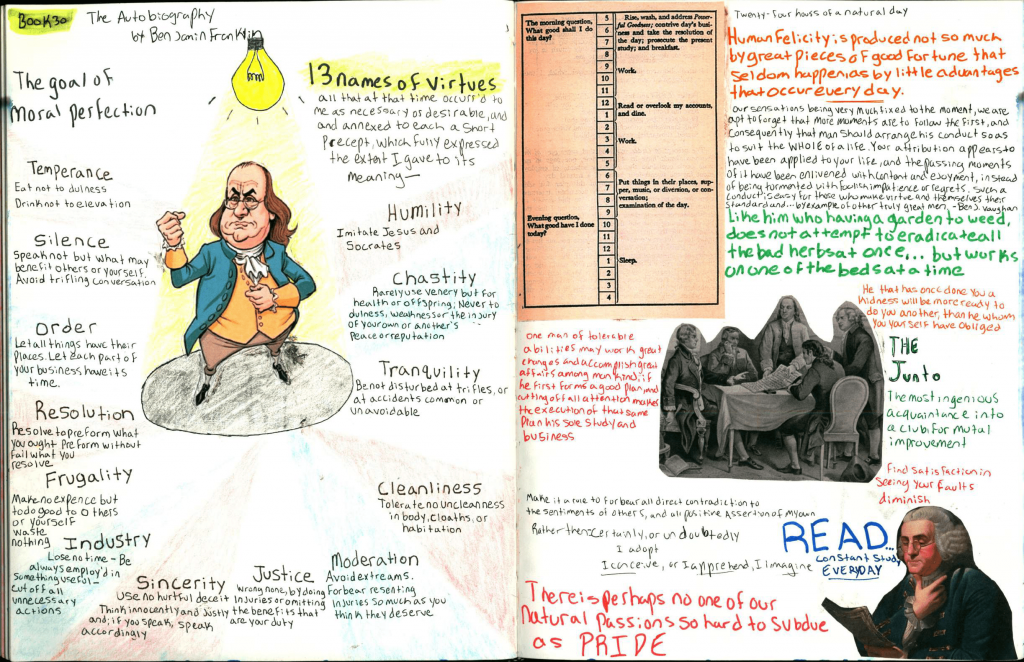 BOOK30
The Autobiography
by Benjamin Franklin
The goal of
Moral perfection
13 names of virtues
all that at that time occurr'd to
me as necessary or desirable, and
and annexed to each a short
Precept, which fully expressed
the extent I gave to its
meaning—
Temperance
Eat not to dulness
Drink not to elevation
Silence
Speak not but what may
benefit others or yourself.
Avoid trifling conversation
Order
Let all things have their
Places. Let each part of
your business have its
time.
Resolution
Resolve to preform what
you ought Preform without
fail what you
resolve
Frugality
Make no expence but
to do good to others
or yourself
waste
nothing
Industry
Lose no time - Be
always employ'd in
something useful—
cut off all
unnecessary
actions
Sincerity
Use no hurtful deceit
Think innocently and Justly
and; if you speak, speak
accordingly
Justice
wrong none, by doing
Injuries or omitting
the benefits that
are your duty
Moderation
Avoid extreams.
Forbear resenting
injuries so much as you
think they deserve
Cleanliness
Tolerate no uncleanness
in body, cloaths, or
habitation
Tranquility
Be not disturbed at trifles, or
at accidents common or
unavoidable
Chastity
Rarely use venery but for
health or offspring; Never to
dulness, weakness or the injury
of your own or another's
Peace or reputation
Humility
Imitate Jesus and
Socrates
The morning question,
What good shall I do
this day?
5
6
7
8
9
10
11
12
1
2
3
4
5
6
7
8
9
10
11
12
1
2
3
4
Rise, wash, and address Power-
ful Goodness; contrive day's busi-
ness and take the resolution of
the day; prosecute the present
study; and breakfast.
Work.
Read or overlook my accounts,
and dine.
Work.
Put things in their places, sup-
per, music, or diversion, or con-
versation;
examination of the day.
Sleep.
Evening question,
What good have I done
today?
Twenty-four hours of a natural day
Human Felicity is produced not so much
by great pieces of good fortune that
seldom happen as by little advantages
that occur every day.
our sensations being very much fixed to the moment, we are
apt to forget that more moments are to follow the first, and
consequently that man should arrange his conduct so as
to suit the WHOLE of a life. Your attribution appears to
have been applied to your life, and the passing moments
of it have been enlivened with content and enjoyment, instead
of being tormented with foolish impatience or regrets. Such a
conduct is easy for those who make virtue and themselves their
standard and... by example of other truly great men, - Benj. Vaughan
Like him who having a garden to weed,
does not attempt to eradicate all
the bad herbs at once... but works
on one of the beds at a time
He that has once done you a
kidness will be more ready to
do you another, than he whom
you yourself have obliged
one man of tolerable
abilities may work great
changes and accomplish great
affairs among mankind; if
he first forms a good plan, and
cutting off all attention makes
the execution of that same
Plan his sole study and
business
THE
Junto
The most ingenious
acquaintance into
a club for mutal
improvement
Find satisfaction in
seeing your faults
diminish
Make it a rule to forbear all direct contradiction to
the sentiments of others, and all positive Assertion of my own
Rather then: Certainly, or undoubtedly
I adopt
I conceive, or I apprehend, I Imagine
READ...
Constant Study
EVERYDAY
There is perhaps no one of our
Natural Passions so hard to Subdue
as PRIDE